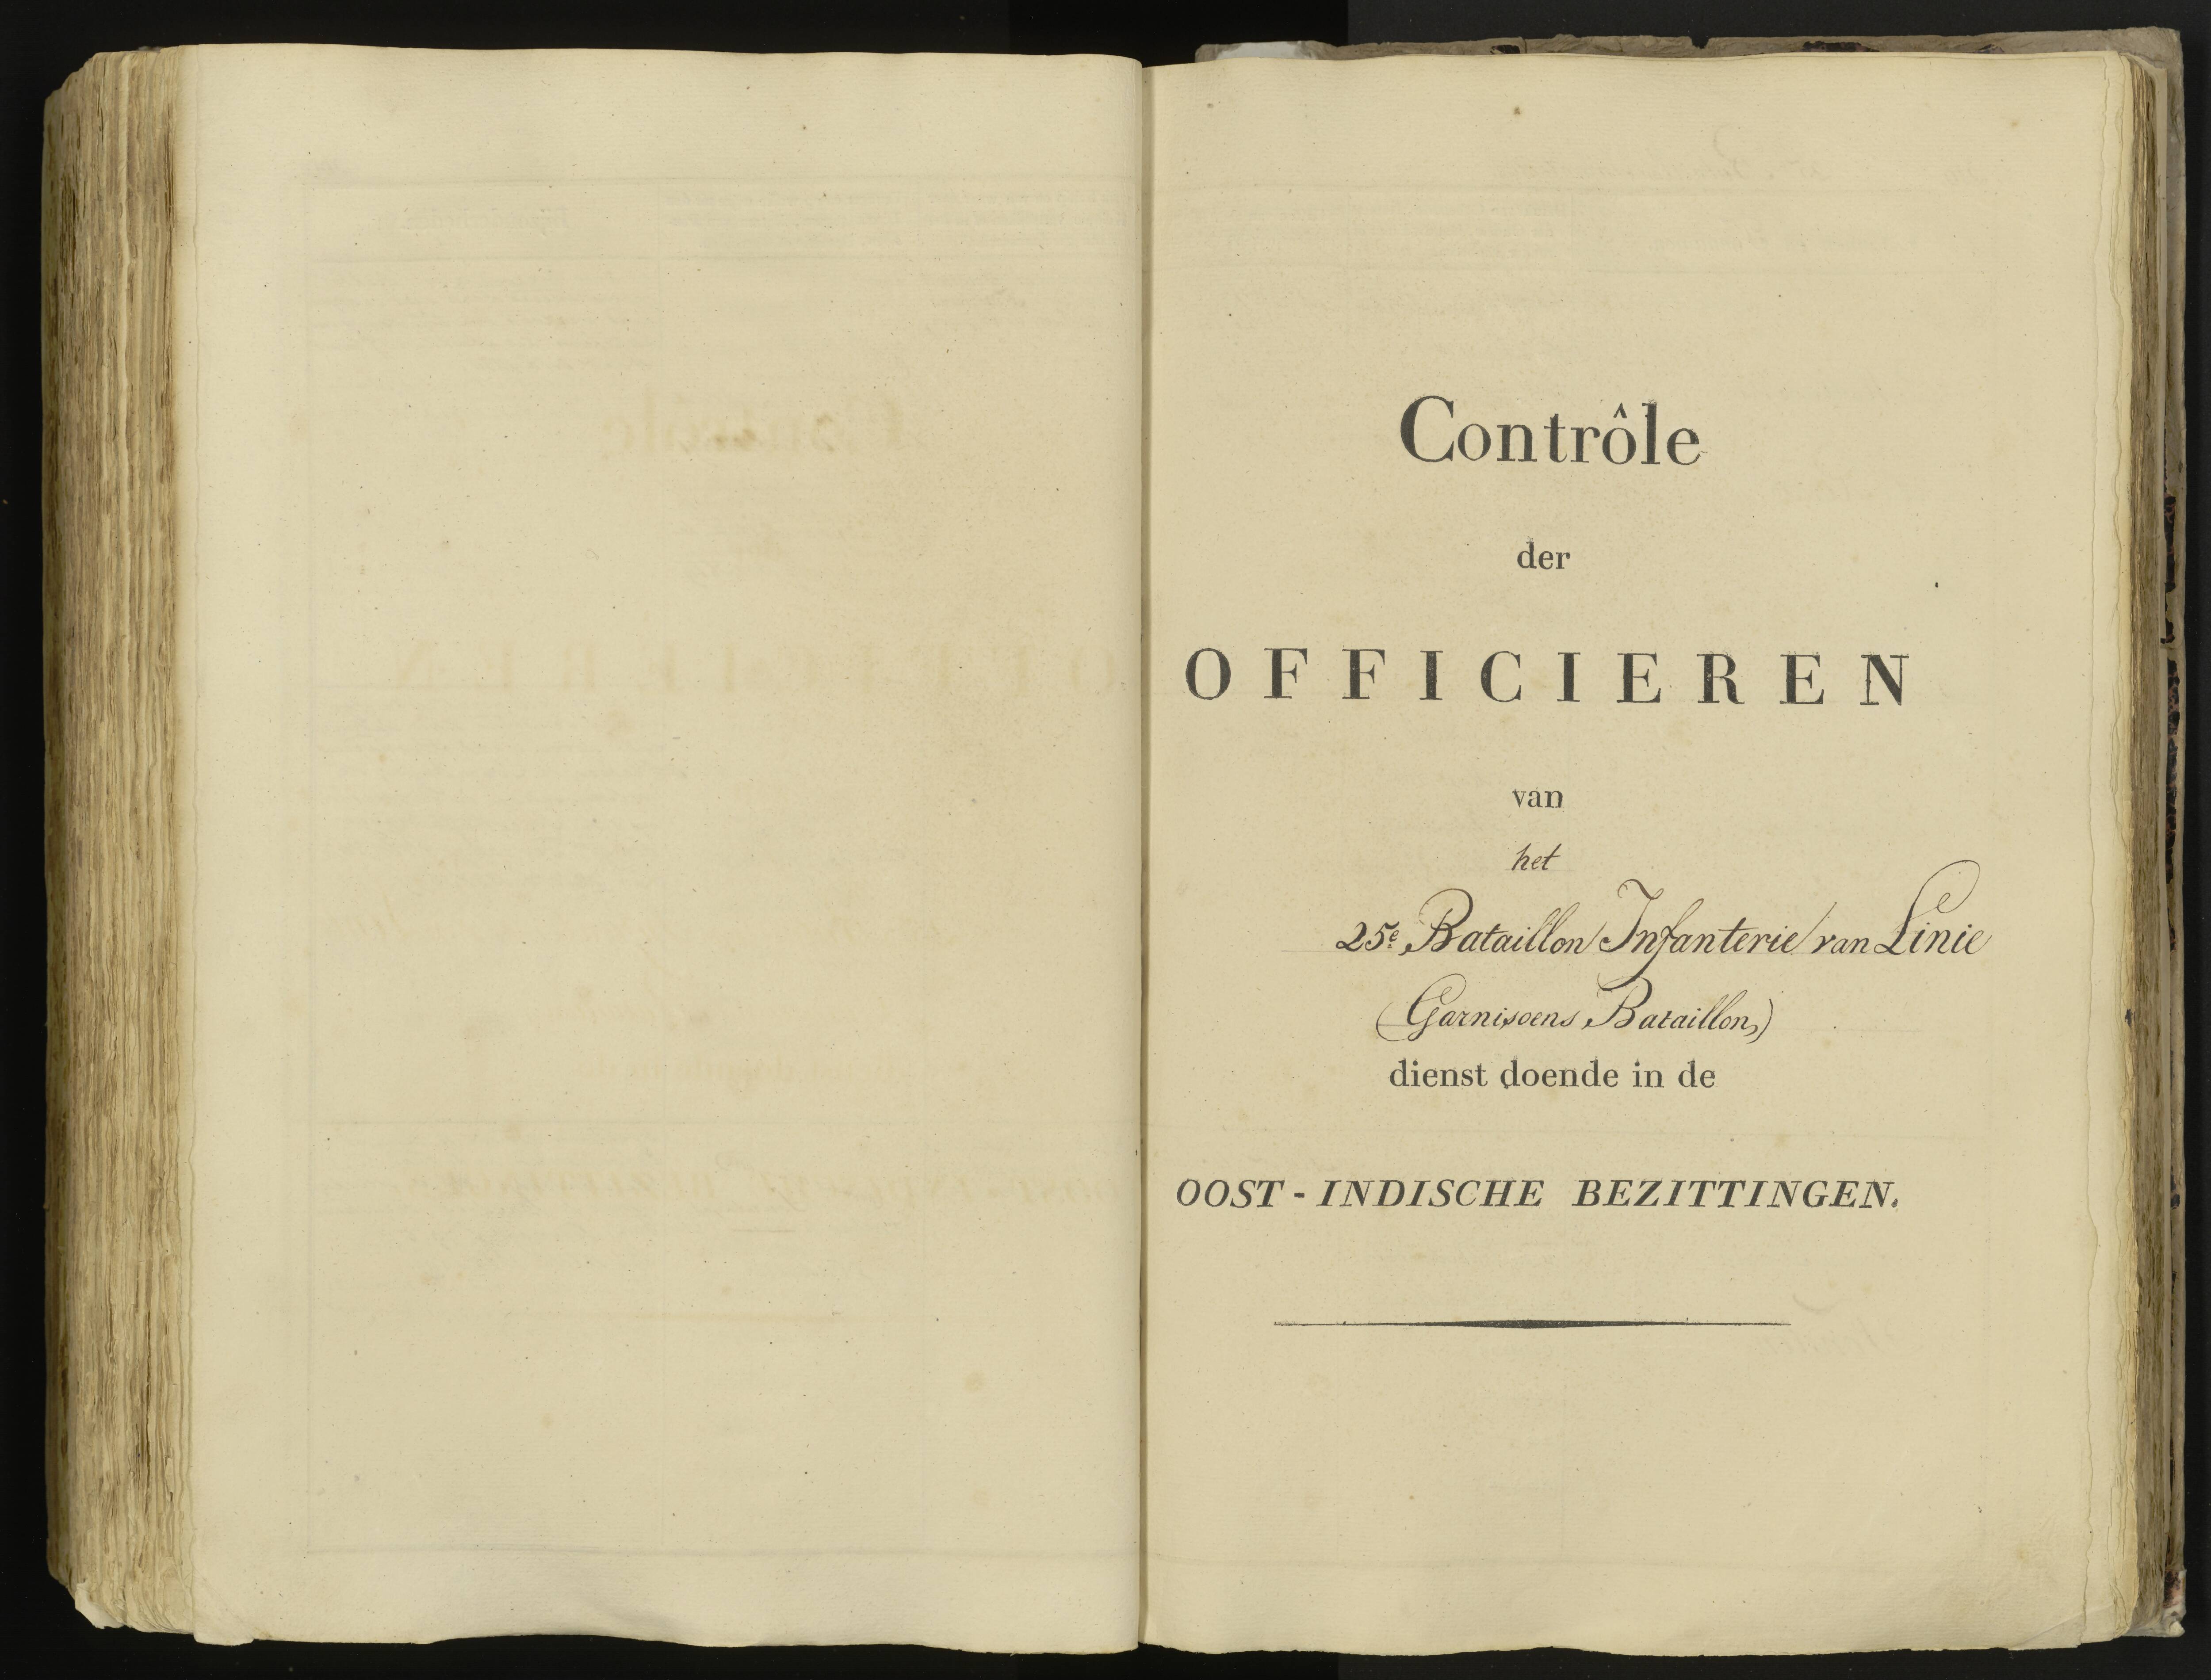 Contrôle
der
OFFICIEREN
van
het
25e Bataillon Infanterie van Linie
(Garnisoens Bataillon)
dienst doende in de
OOST - INDISCHE BEZITTINGEN.